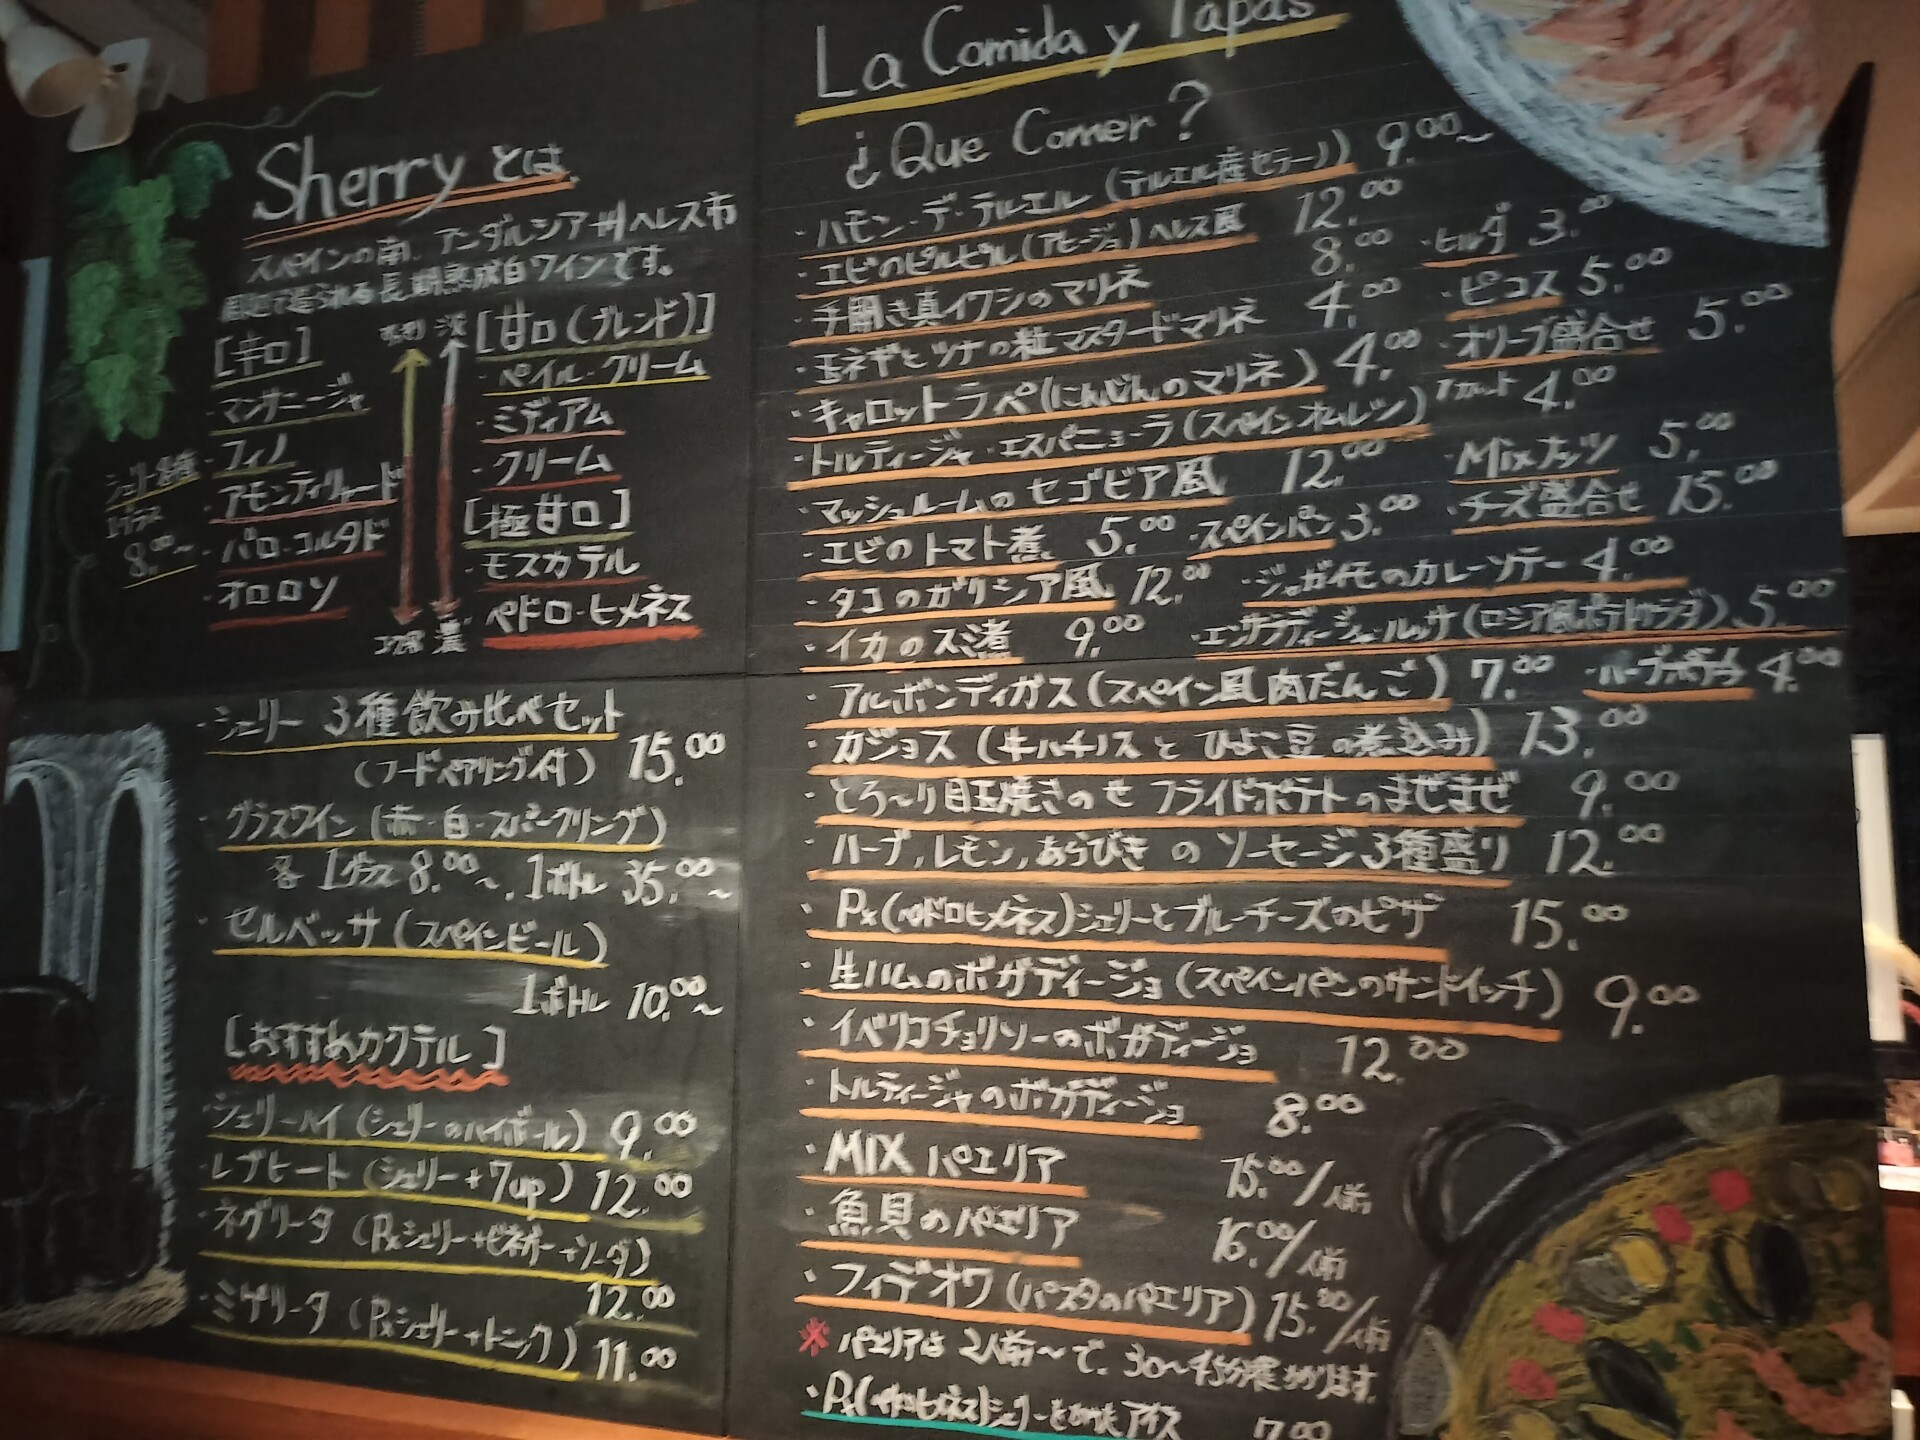 Sherry とは、
スペインの南、アンダルシア州ヘレス市
周辺で造られる長期熟成白ワインです。
[辛口]
・マンサニージャ
・フィノ
・アモンティリャード
・パロ・コルタド
・オロロソ
シェリー8種
1グラス
8.00~
淡
濃
[甘口(ブレンド)]
・ペイル・クリーム
・ミディアム
・クリーム
[極甘口]
・モスカテル
・ペドロ・ヒメネス
・シェリー 3種飲み比べセット
(フードペアリング付) 15.00
・グラスワイン(赤・白・スパークリング)
各 1グラス 8.00~, 1ボトル 35.00~
・セルベッサ(スペインビール)
1ボトル 10.00~
[おすすめカクテル]
・シェリーハイ(シェリーのハイボール) 9.00
・レブヒート(シェリー+7up) 12.00
・ネグリータ(Pxシェリー+ビネガー+ソーダ)
12.00
・ミゲリータ(Pxシェリー+トニック) 11.00
La Comida y Tapas
¿Que Comer?
・ハモン・デ・テルエル(テルエル産セラーノ) 9.00~
・エビのピルピル(アヒージョ)ヘレス風 12.00
・手開き真イワシのマリネ 8.00 ・ヒルダ 3.00
・玉ネギとツナの粒マスタードマリネ 4.00 ・ピコス 5.00
・キャロットラペ(にんじんのマリネ) 4.00 ・オリーブ盛合せ 5.00
・トルティージャ・エスパニョーラ(スペインオムレツ) 1カット 4.00
・マッシュルームのセゴビア風 12.00 ・Mixナッツ 5.00
・エビのトマト煮 5.00 ・スペインパン 3.00 ・チーズ盛合せ 15.00
・タコのガリシア風 12.00 ・ジャガイモのカレーソテー 4.00
・イカのスミ煮 9.00 ・エンサラディージャ・ルッサ(ロシア風ポテトサラダ) 5.00
・アルボンディガス(スペイン風肉だんご) 7.00 ・ハーブポテト 4.00
・カジョス(牛ハチノスとひよこ豆の煮込み) 13.00
・とろ~り目玉焼きのせ フライドポテトのまぜまぜ 9.00
・ハーブ, レモン, あらびきのソーセージ3種盛り 12.00
・Px(ペドロヒメネス)シェリーとブルーチーズのピザ 15.00
・生ハムのボカディージョ(スペインパンのサンドイッチ) 9.00
・イベリコチョリソーのボカディージョ 12.00
・トルティージャのボカディージョ 8.00
・MIXパエリア 15.00/人前
・魚貝のパエリア 16.00/人前
・フィデオワ(パスタのパエリア) 15.00/人前
※パエリアは2人前~で、30~45分程かかります。
・Px(ペドロヒメネス)シェリーをかけたアイス